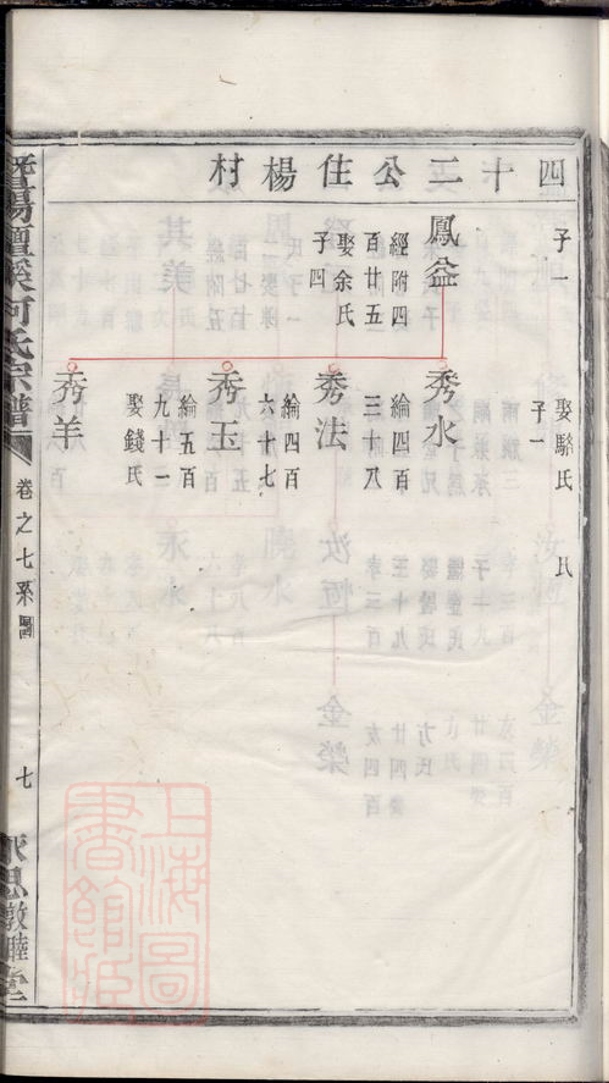 四十二公住楊村
子一
娶駱氏
子一
氏
鳳益
經附四
百廿五
娶余氏
子四
秀水
綸四百
三十八
秀法
綸四百
六十七
秀玉
綸五百
九十一
娶錢氏
秀羊
暨陽壇溪何氏宗譜
卷之七系圖
七
永思敦睦堂
上海圖書館藏